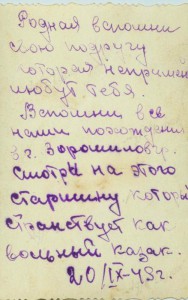 Родная вспомни
свою подругу
которая
любут тебя.
Вспомни все
наши похождения
в г. Ворошилов
смотря на этого
старшину которы
странствует как
вольный казак.
20/IX-49г.